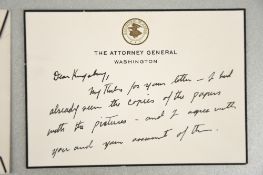 THE ATTORNEY GENERAL
WASHINGTON
Dear Kingsbury,
My thanks for your letter – I had
already seen the copies of the papers
with the pictures – and I agree with
you and your account of them.